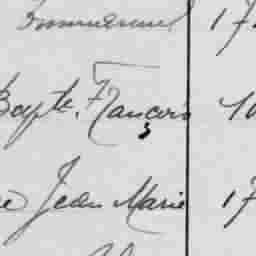 Emmanuel 17
Bapte. François 10
e Jean Marie 17